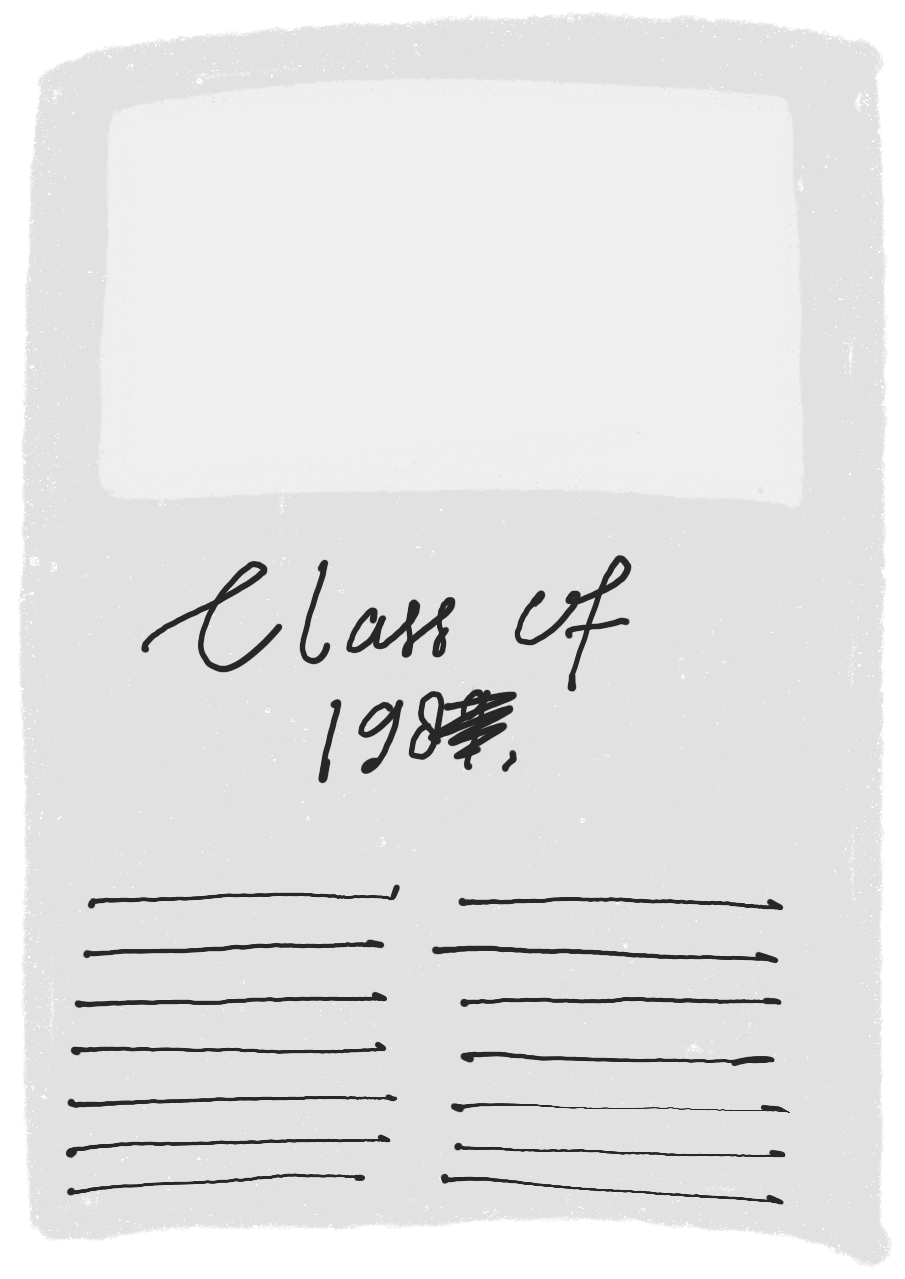 Class of
198